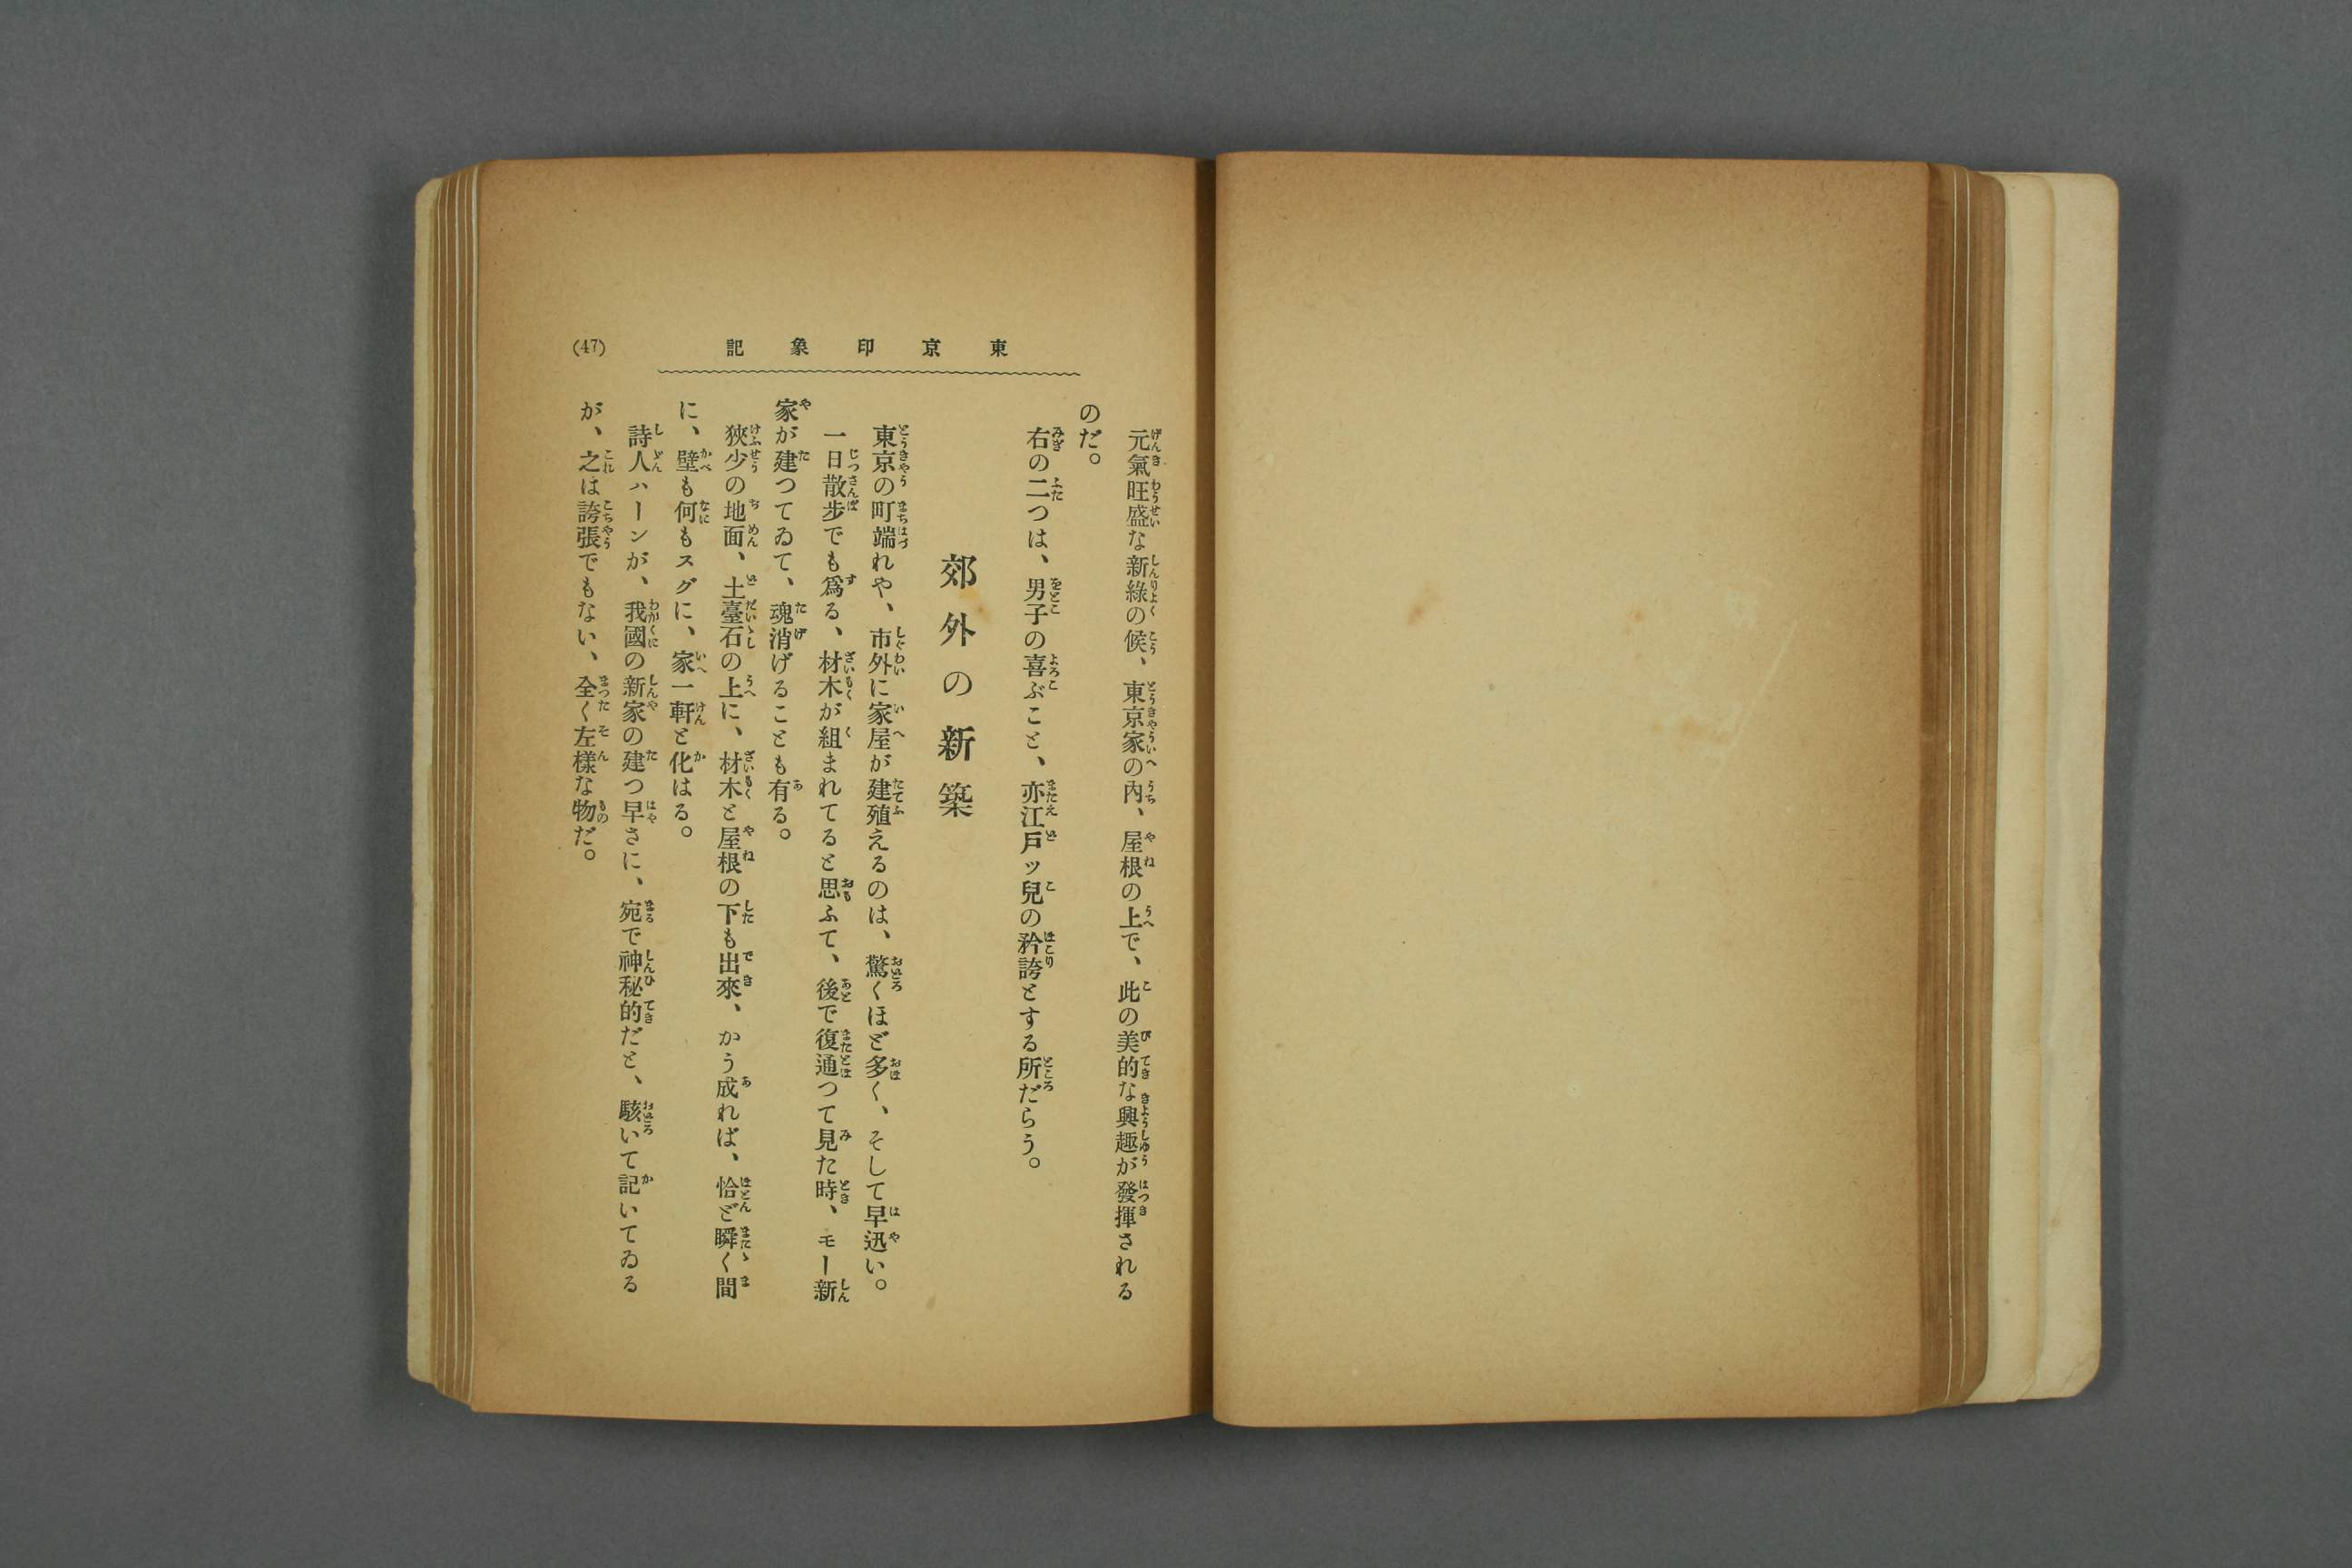 東京印象記
(47)
元氣旺盛な新綠の候、東京家の內、屋根の上で、此の美的な興趣が發揮される
のだ。
右の二つは、男子の喜ぶこと、亦江戸ッ兒の矜誇とする所だらう。
郊外の新築
東京の町端れや、市外に家屋が建殖えるのは、驚くほど多く、そして早迅い。
一日散步でも爲る、材木が組まれてると思ふて、後で復通つて見た時、モー新
家が建つてゐて、魂消げることも有る。
狹少の地面、土臺石の上に、材木と屋根の下も出來、かう成れば、恰ど瞬く間
に、壁も何もスグに、家一軒と化はる。
詩人ハーンが、我國の新家の建つ早さに、宛で神秘的だと、駭いて記いてゐる
が、之は誇張でもない、全く左樣な物だ。